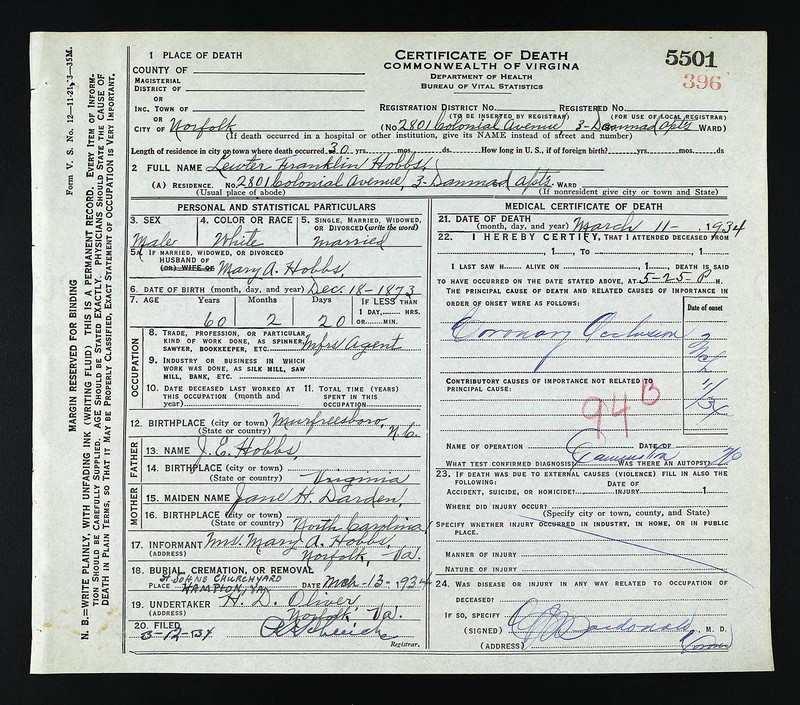 1 PLACE OF DEATH
COUNTY OF
MAGISTERIAL
DISTRICT OF
OR
INC. TOWN OF
OR
CITY OF Norfolk
CERTIFICATE OF DEATH
COMMONWEALTH OF VIRGINIA
DEPARTMENT OF HEALTH
BUREAU OF VITAL STATISTICS
5501
396
REGISTRATION DISTRICT NO. REGISTERED NO.
(TO BE INSERTED BY REGISTRAR) (FOR USE OF LOCAL REGISTRAR)
(No. 2801 Colonial Avenue, 3-Danmad Apts WARD)
(If death occurred in a hospital or other institution, give its NAME instead of street and number)
Length of residence in city or town where death occurred 30 yrs. mos. ds How long in U. S., if of foreign birth? yrs. mos. ds
2 FULL NAME Lewter Franklin Hobbs,
(A) RESIDENCE. No. 2801 Colonial Avenue, 3-Danmad Apts. WARD
(Usual place of abode) (If nonresident give city or town and State)
PERSONAL AND STATISTICAL PARTICULARS
3. SEX 4. COLOR OR RACE 5. SINGLE, MARRIED, WIDOWED, OR DIVORCED (write the word)
Male White married
5A IF MARRIED, WIDOWED, OR DIVORCED
HUSBAND OF
(OR) WIFE OF Mary A. Hobbs,
6. DATE OF BIRTH (month, day, and year) Dec. 18-1873
7. AGE Years Months Days IF LESS THAN
1 DAY, HRS.
60 2 20 OR MIN.
OCCUPATION
8. TRADE, PROFESSION, OR PARTICULAR
KIND OF WORK DONE, AS SPINNER,
SAWYER, BOOKKEEPER, ETC. Mfrs Agent
9. INDUSTRY OR BUSINESS IN WHICH
WORK WAS DONE, AS SILK MILL, SAW
MILL, BANK, ETC.
10. DATE DECEASED LAST WORKED AT 11. TOTAL TIME (YEARS)
THIS OCCUPATION (month and SPENT IN THIS
year) OCCUPATION
12. BIRTHPLACE (city or town) Murfreesboro,
(State or country) N.C.
FATHER
13. NAME J. E. Hobbs,
14. BIRTHPLACE (city or town)
(State or country) Virginia
MOTHER
15. MAIDEN NAME Jane H. Darden,
16. BIRTHPLACE (city or town)
(State or country) North Carolina
17. INFORMANT Mrs. Mary A. Hobbs,
(ADDRESS) Norfolk, Va.
18. BURIAL, CREMATION, OR REMOVAL
PLACE St. JOHNS CHURCHYARD HAMPTON, VA DATE Mch-13-1934
19. UNDERTAKER H. D. Oliver
(ADDRESS) Norfolk, Va.
20. FILED 3-12-34
Registrar.
MEDICAL CERTIFICATE OF DEATH
21. DATE OF DEATH
(month, day, and year) March 11-, 1934
22. I HEREBY CERTIFY, THAT I ATTENDED DECEASED FROM
, 1 , TO , 1
I LAST SAW H ALIVE ON , 1 , DEATH IS SAID
TO HAVE OCCURRED ON THE DATE STATED ABOVE, AT 5-25-P M.
THE PRINCIPAL CAUSE OF DEATH AND RELATED CAUSES OF IMPORTANCE IN
ORDER OF ONSET WERE AS FOLLOWS:
Date of onset
Coronary Occlusion
CONTRIBUTORY CAUSES OF IMPORTANCE NOT RELATED TO
PRINCIPAL CAUSE:
94 B
NAME OF OPERATION DATE OF
WHAT TEST CONFIRMED DIAGNOSIS? WAS THERE AN AUTOPSY? No
23. IF DEATH WAS DUE TO EXTERNAL CAUSES (VIOLENCE) FILL IN ALSO THE
FOLLOWING: DATE OF
ACCIDENT, SUICIDE, OR HOMICIDE? INJURY 1
WHERE DID INJURY OCCUR?
(Specify city or town, county, and State)
SPECIFY WHETHER INJURY OCCURRED IN INDUSTRY, IN HOME, OR IN PUBLIC
PLACE.
MANNER OF INJURY
NATURE OF INJURY
24. WAS DISEASE OR INJURY IN ANY WAY RELATED TO OCCUPATION OF
DECEASED?
IF SO, SPECIFY
(SIGNED) Macdonald, M. D.
(ADDRESS) Coroner
Form V. S. No. 12—11-21, 3—35M.
MARGIN RESERVED FOR BINDING
N. B.—WRITE PLAINLY, WITH UNFADING INK (WRITING FLUID) THIS IS A PERMANENT RECORD. EVERY ITEM OF INFORMA-
TION SHOULD BE CAREFULLY SUPPLIED. AGE SHOULD BE STATED EXACTLY. PHYSICIANS SHOULD STATE THE CAUSE OF
DEATH IN PLAIN TERMS, SO THAT IT MAY BE PROPERLY CLASSIFIED, EXACT STATEMENT OF OCCUPATION IS VERY IMPORTANT.